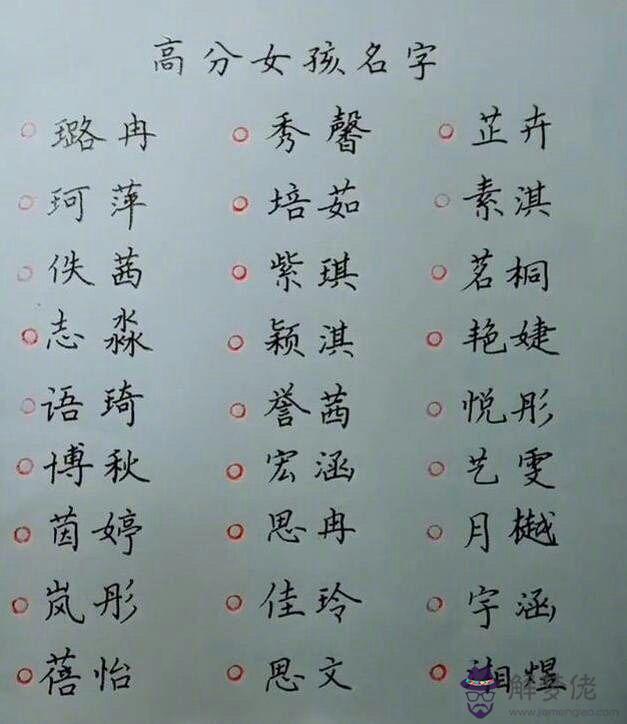 高分女孩名字
璐冉 秀馨 芷卉
珂萍 培茹 素淇
佚茜 紫琪 茗桐
志淼 颖淇 艳婕
语琦 誉茜 悦彤
博秋 宏涵 艺雯
茵婷 思冉 月樾
岚彤 佳玲 宇涵
蓓怡 思文 湘煜
解梦佬
www.jiemenglao.com